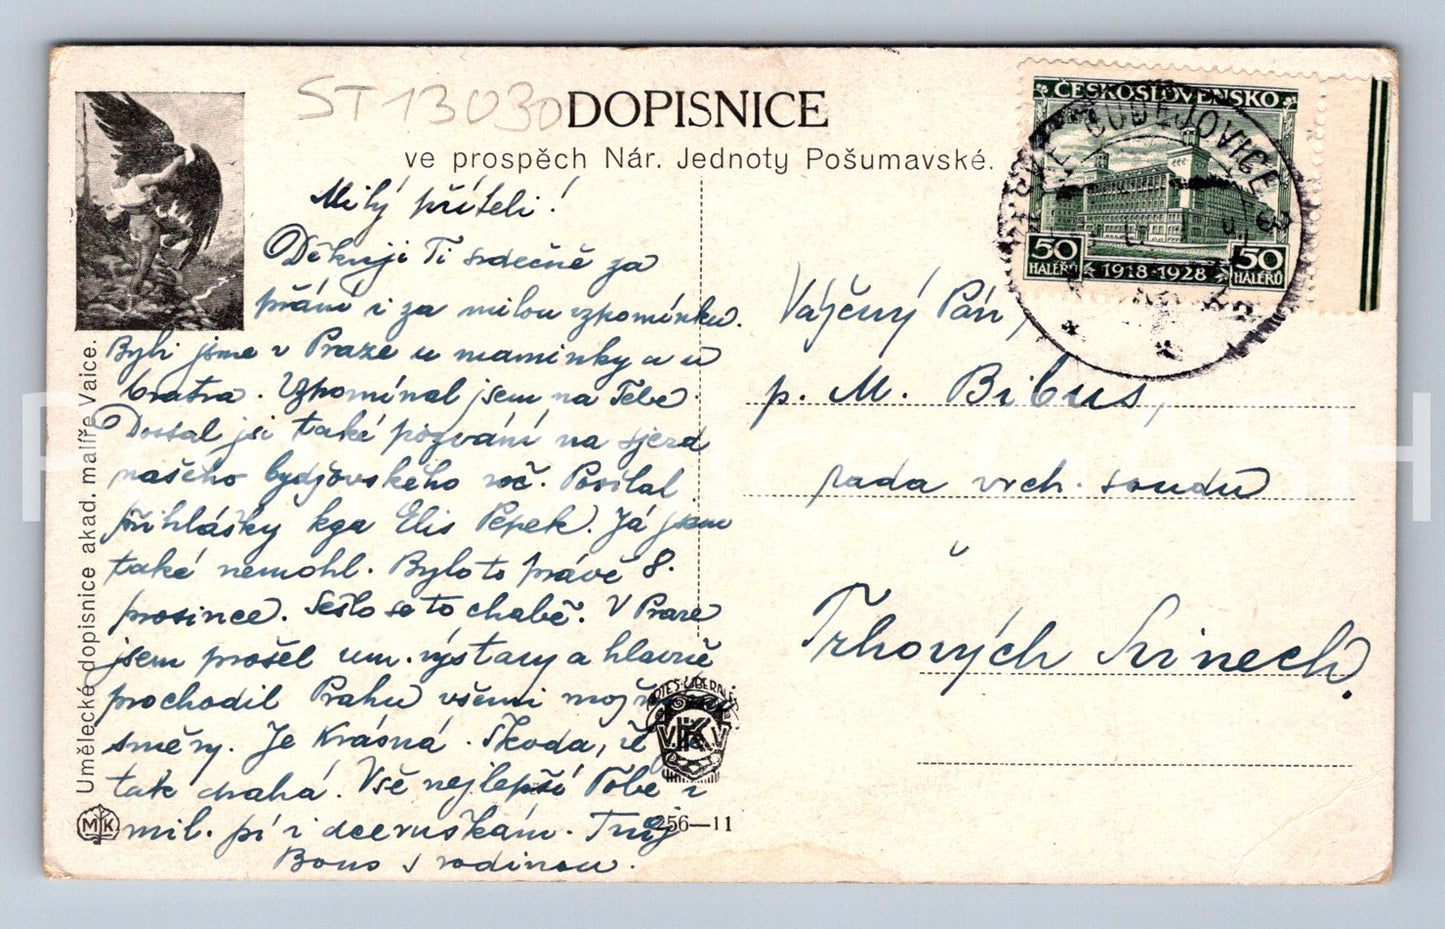 ST 13030
DOPISNICE
ve prospěch Nár. Jednoty Pošumavské.
ČESKOSLOVENSKO
50 HALÉŘŮ
1918-1928
50 HALÉŘŮ
BUDĚJOVICE 3
Milý příteli!
Děkuji Ti srdečně za
přání i za milou vzpomínku.
Byli jsme v Praze u maminky a u
bratra. Vzpomínal jsem na Tebe.
Dostal jsi také pozvání na sjezd
našeho bydžovského roč. Posílal
přihlášky kga Elis Pepek. Já jsem
také nemohl. Bylo to právě 8.
prosince. Sešlo se to chabě. V Praze
jsem prošel um. výstavy a hlavně
prochodil Prahu všemi možnými
směry. Je krásná. Škoda, že je
tak drahá. Vše nejlepší Tobě i
mil. pí i dceruškám. Tvůj
Bous s rodinou.
Vážený Pán,
p. M. Bibus,
rada vrch. soudu
v
Trhových Svinech.
Umělecké dopisnice akad. malíře Vaice.
MK
ARTES LIBERALES
V.K.K.V
256—11